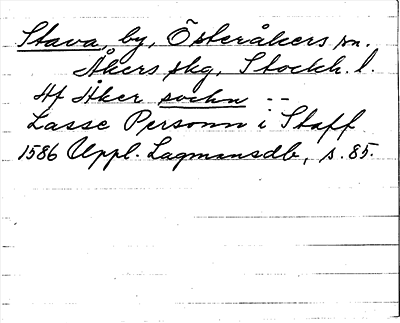 Stava, by, Österåkers sn.
Åkers skg, Stockh. l.
Af Åker sochn --
Lasse Personn i Staff
1586 Uppl. Lagmansdb, s. 85.